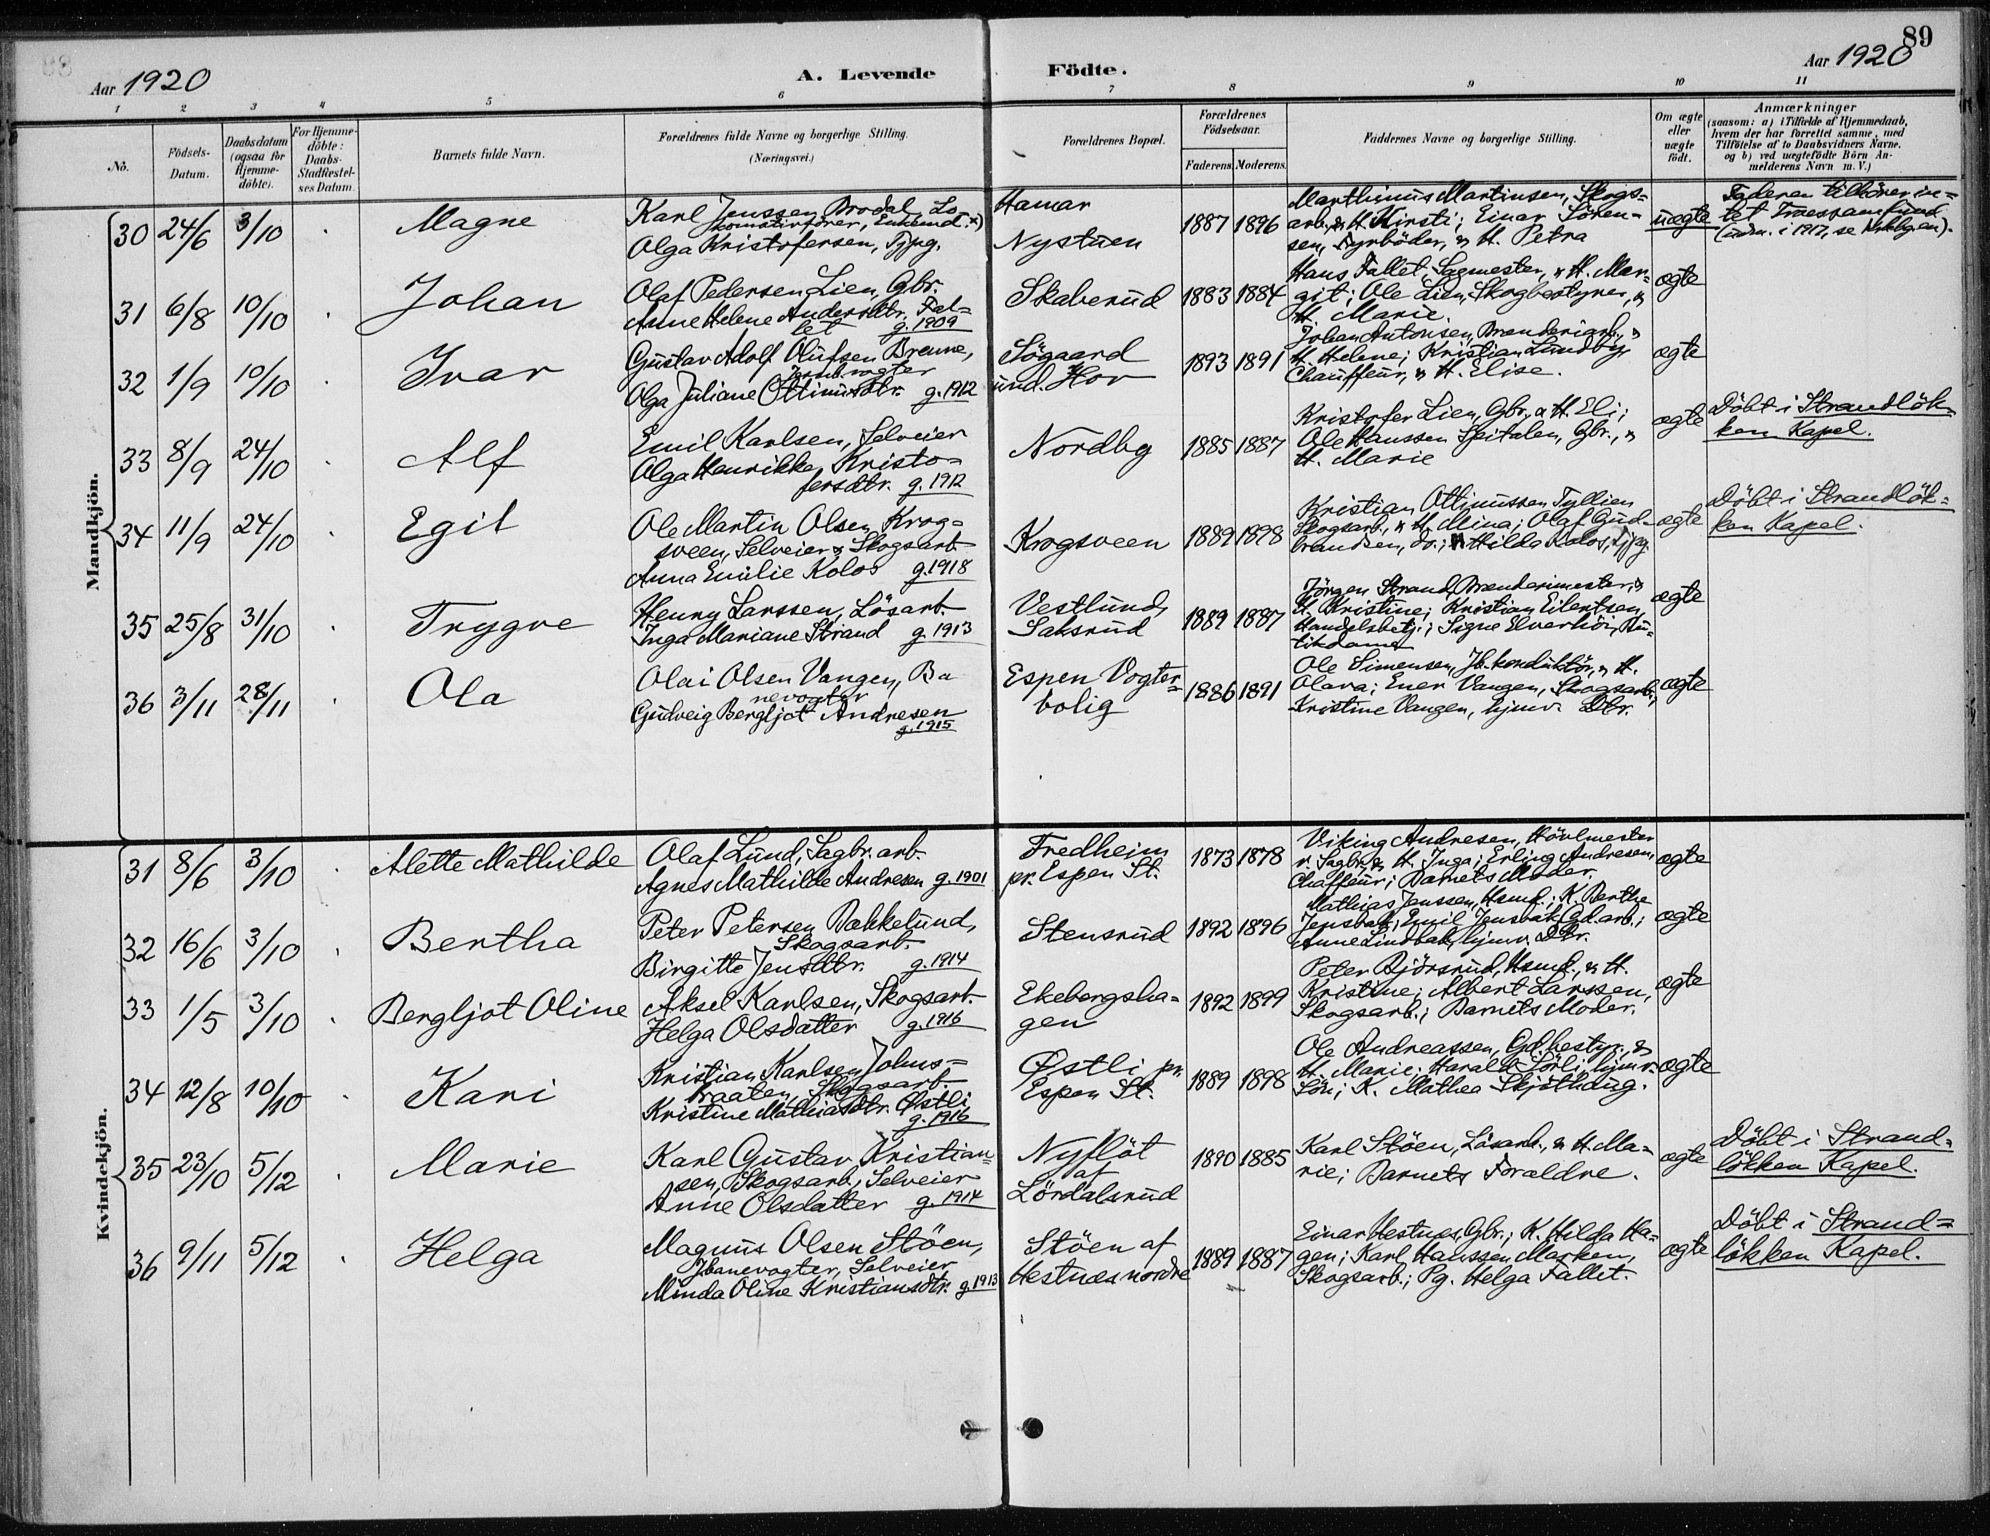 89
Aar 1920
A. Levende Födte.
Aar 1920
1 2 3 4 5 6 7 8 9 10 11
No.
Födsels-Datum.
Daabsdatum (ogsaa for Hjemmedöbte).
For Hjemmedöbte: Daabs-Stadfæstelses Datum.
Barnets fulde Navn.
Forældrenes fulde Navne og borgerlige Stilling.
(Næringsvei.)
Forældrenes Bopæl.
Forældrenes Födselsaar.
Faderens. Moderens.
Faddernes Navne og borgerlige Stilling.
Om ægte eller uægte födt.
Anmærkninger
(saasom: a) i Tilfælde af Hjemmedaab,
hvem der har forrettet samme, med
Tilföielse af to Daabsvidners Navne.
og b) ved uægtefödte Börn Anmelderens Navn m. V.)
Mandkjön.
30 24/6 3/10 Magne
Karl Jenssen Brodal, Lo-
komotivförer, Enkemd. x)
Olga Kristofersen, Tjpg.
Hamar
Nystuen
1887 1896
Marthinus Martinsen, Skogs-
arb. & H. Kirsti; Einar Sören-
sen, Fyrböder, & H. Petra
uægte
Faderen tilhörer in-
tet Troessamfund
(udm. i 1917, se Kirkbgen).
31 6/8 10/10 Johan
Olaf Pedersen Lien, Gbr.
Anne Helene Andersdtr. Fal-
let g. 1909
Skaberud
1883 1884
Hans Fallet, Sagmester, & H. Mar-
git; Ole Lien, Skogbestyrer, &
H. Marie.
ægte
32 1/9 10/10 Ivar
Gustav Adolf Olufsen Brenne,
Jernb.vogter
Olga Juliane Ottinusdtr. g. 1912
Sögaard
und. Hov
1893 1891
Johan Antonsen, Brænderiarb. &
H. Helene; Kristian Lundby,
Chauffeur, & H. Elise.
ægte
33 8/9 24/10 Alf
Emil Karlsen, Selveier
Olga Henrikke Kristo-
fersdtr. g. 1912
Nordby
1885 1887
Kristofer Lien, Gbr. & H. Eli;
Ole Hanssen Speitalen, Gbr., &
H. Marie
ægte
Döbt i Strandlök-
ken Kapel.
34 11/9 24/10 Egil
Ole Martin Olsen Krog-
sveen, Selveier & Skogsarb.
Anna Emilie Kolos g. 1918
Krogsveen
1889 1898
Kristian Ottinussen Tyllien
Skogsarb., & H. Mina; Olaf Gud-
brandsen, do.; Hilda Kolos, Tjpg.
ægte
Döbt i Strandlök-
ken Kapel.
35 25/8 31/10 Trygve
Henry Larssen, Lösarb.
Inga Mariane Strand g. 1913
Vestlund,
Saksrud
1889 1887
Jörgen Strand, Brænderimester, &
H. Kristine; Kristian Eilertsen,
Handelsbetj.; Signe Elverhöi, Bu-
tikdame
ægte
36 3/11 28/11 Ola
Olai Olsen Vangen, Ba
nevogter
Gudveig Bergljot Andresen
g. 1915
Espen Vogter-
bolig
1886 1891
Ole Simensen, Jb.konduktör, & H.
Olava; Ener Vangen, Skogsarb.;
Kristine Vangen, hjmv. Dtr.
ægte
Kvindekjön.
31 8/6 3/10 Alette Mathilde
Olaf Lund, Sagbr. arb.
Agnes Mathilde Andresen g. 1901
Fredheim
pr. Espen St.
1873 1878
Viking Andresen, Hövlmester
v. Sagbr. & H. Inga; Erling Andresen,
Chaffeur; Barnets Moder.
ægte
32 16/6 3/10 Bertha
Peter Petersen Bakkelund,
Skogsarb.
Birgitte Jensdtr. g. 1914
Stensrud
1892 1896
Mathias Jenssen, Hsmd.; K. Berthe
Jensbak; Emil Jensbak, Gd.arb.;
Anne Lindbak, hjmv. Dtr.
ægte
33 1/5 3/10 Bergljot Oline
Aksel Karlsen, Skogsarb.
Helga Olsdatter g. 1916
Ekebergsha-
gen
1892 1899
Peter Björsrud, Hsmd., & H.
Kristine; Albert Larssen,
Skogsarb.; Barnets Moder.
ægte
34 12/8 10/10 Kari
Kristian Karlsen Johns-
braaten, Skogsarb.
Kristine Mathiasdtr. Østli
g. 1916
Østli pr.
Espen St.
1889 1898
Ole Andreassen, Gd.bestyr., &
H. Marie; Harald Sörli, hjmv.
Sön; K. Mathea Skjöthaug.
ægte
35 23/10 5/12 Marie
Karl Gustav Kristian-
sen, Skogsarb., Selveier
Anne Olsdatter g. 1914
Nyflöt
af
Lördalsrud
1890 1885
Karl Stöen, Lösarb., & H. Ma-
rie; Barnets Foraldre.
ægte
Döbt i Strand-
lökken Kapel.
36 9/11 5/12 Helga
Magnus Olsen Stöen,
Jbanevogter, Selveier
Minda Oline Kristiansdtr. g. 1913
Stöen af
Hestnæs nordre
1889 1887
Einar Hestnes, Gbr.; K. Hilda Ha-
gen; Karl Hanssen Marken,
Skogsarb.; Pg. Helga Fallet.
ægte
Döbt i Strand-
lökken Kapel.